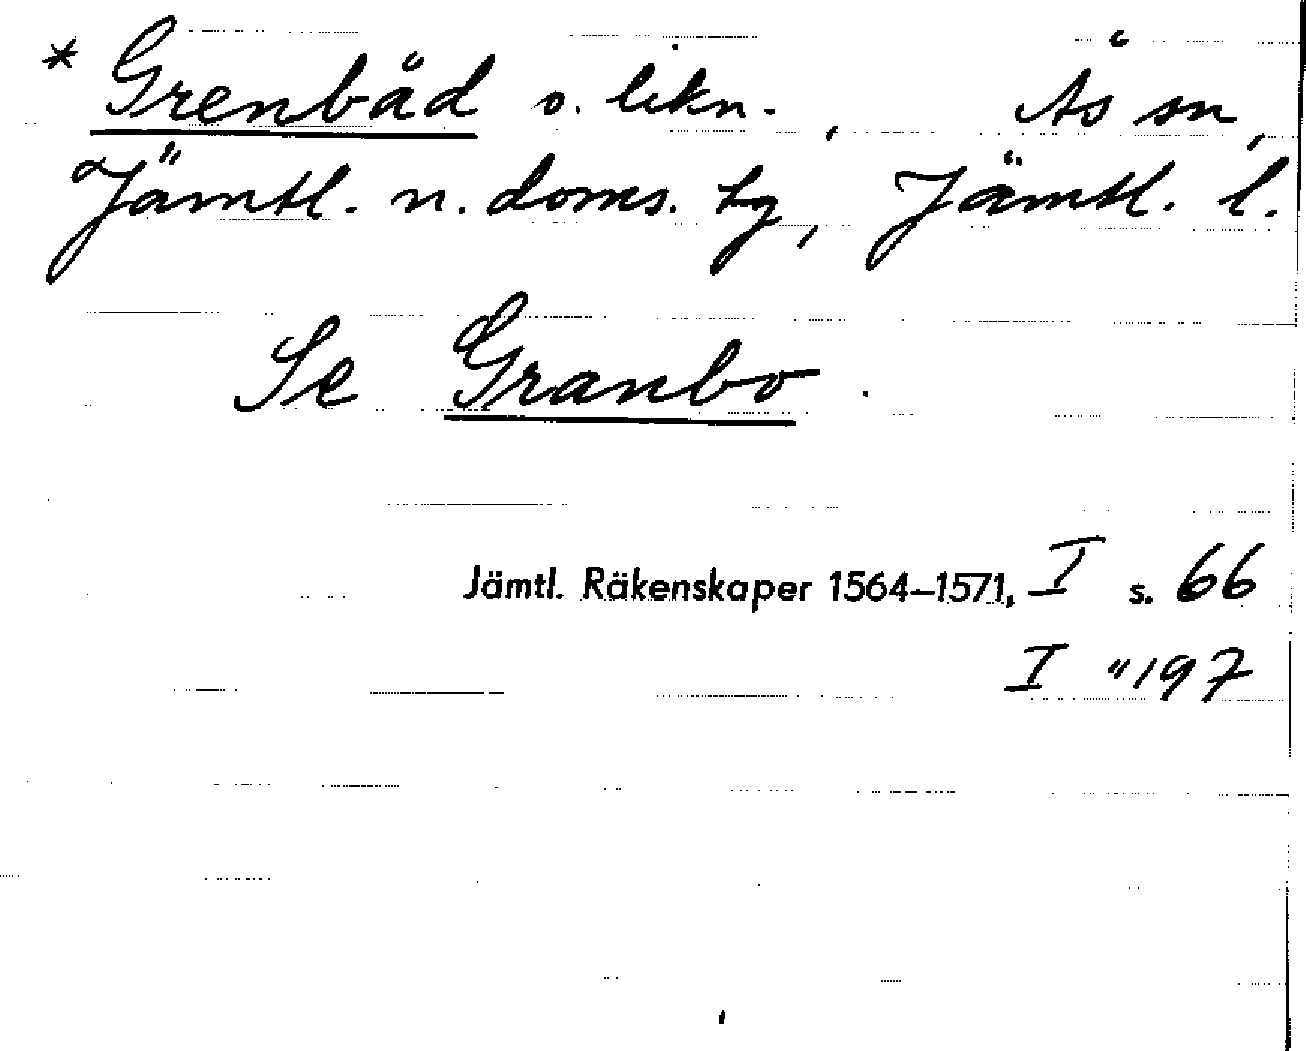 * Grenbåd o. likn., Ås sn,
Jämtl. n. doms. tg, Jämtl. l.
Se Granbo.
Jämtl. Räkenskaper 1564–1571, I s. 66
I " 197